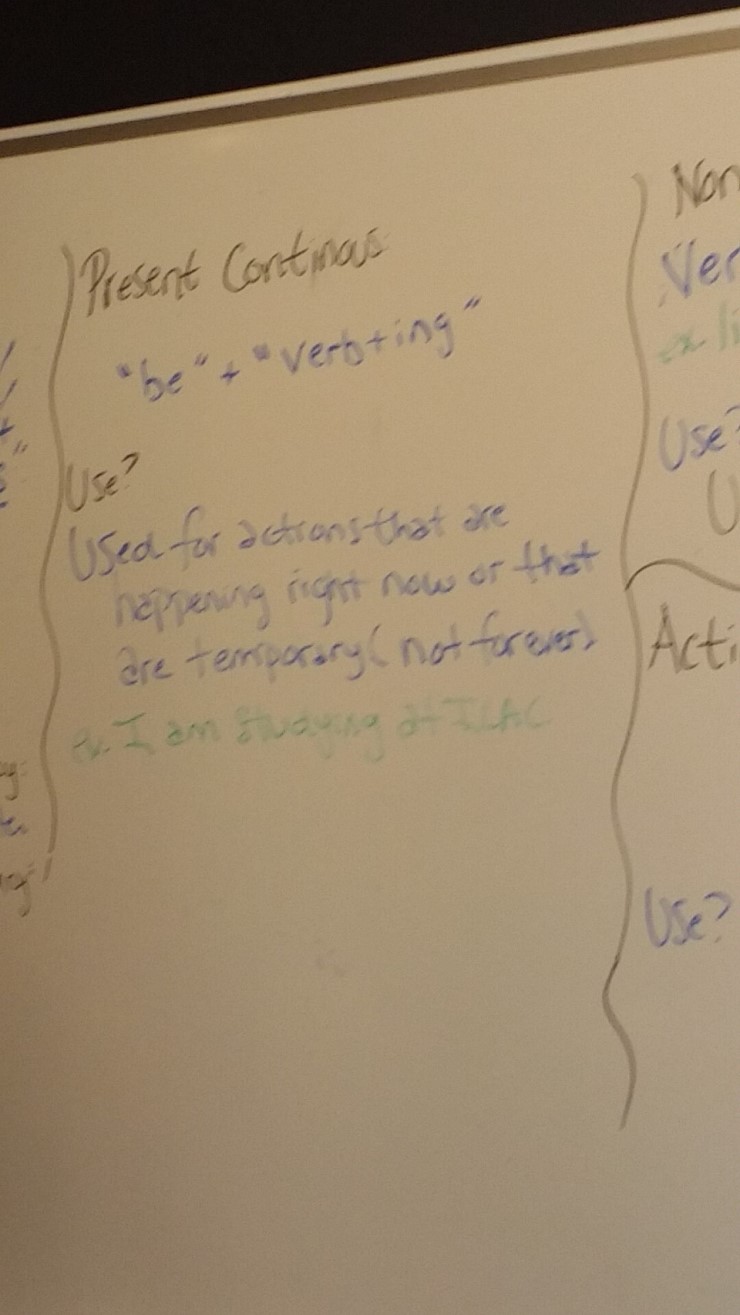 Present Continous
"be" + "verb+ing"
Use?
Used for actions that are
happening right now or that
are temporary (not forever)
ex. I am studying at ILAC
Non
Ver
ex. li
Use?
U
Acti
Use?